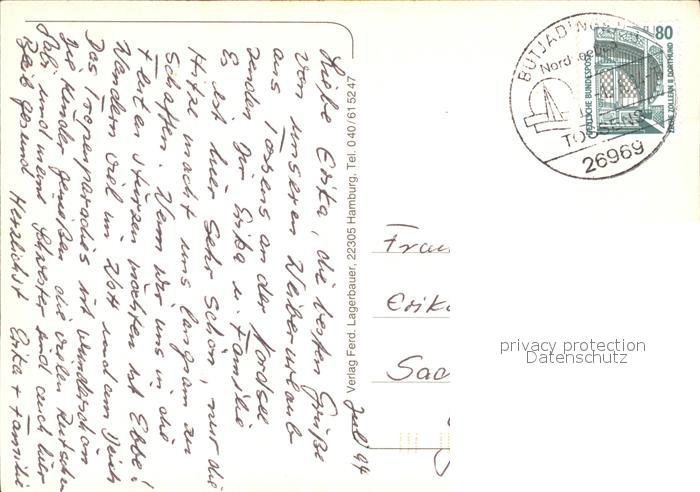 Juli 94
Liebe Erika, die besten Grüße
von unserem Weiberurlaub
aus Tossens an der Nordsee
senden Dir Erika u. Familie
Es ist hier sehr schön, nur die
Hitze macht uns langsam zu
schaffen. Wenn wir uns in die
Fluten stürzen möchten ist Ebbe!
Wandern viel im Watt und am Deich
Das Tropenparadies ist wunderschön
die Kinder genießen die vielen Rutschen
und meine Schwester sind auch hier
Bleib gesund Herzlichst Erika + Familie
Verlag Ferd. Lagerbauer, 22305 Hamburg, Tel. 040/6 15 32 47
BUTJADINGEN
Nordseebad
TOSSENS
26969
80
DEUTSCHE BUNDESPOST
ZECHE ZOLLERN II DORTMUND
Frau
Erika
privacy protection
Datenschutz